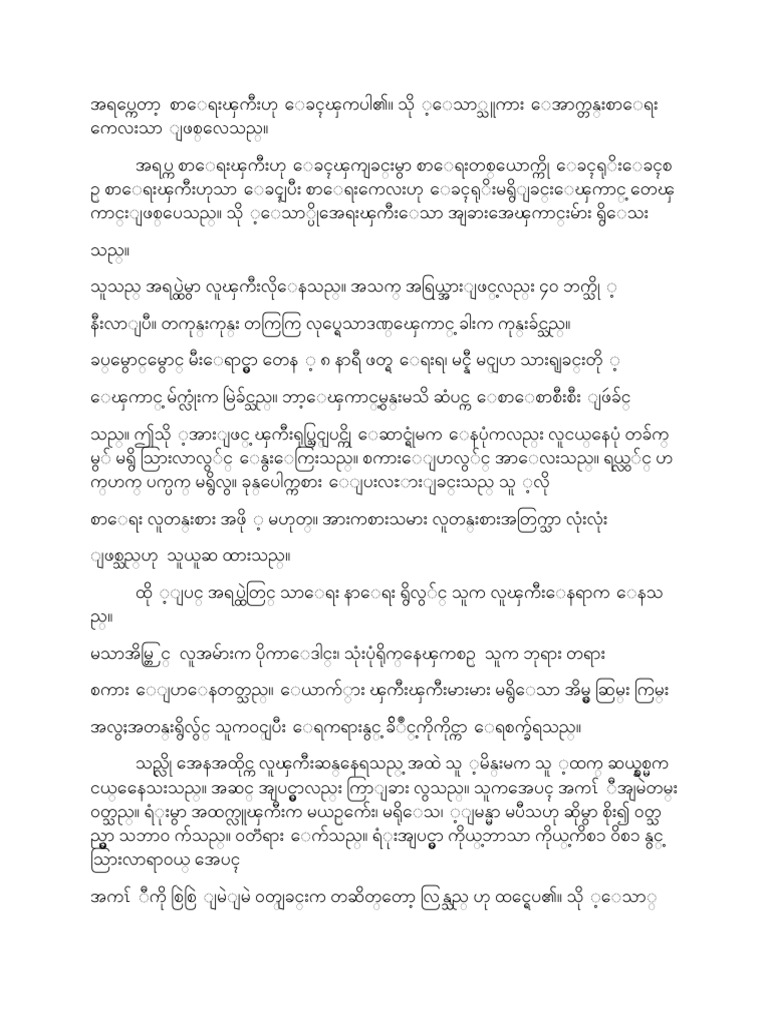 အရပ္ကေတာ့ စာေရးၾကီးဟု ေခၚၾကပါ၏။ သို ့ေသာ္သူကား ေအာက္တန္းစာေရး
ကေလးသာ ျဖစ္ေလသည္။
အရပ္က စာေရးၾကီးဟု ေခၚၾကျခင္းမွာ စာေရးတစ္ေယာက္ကို ေခၚရုိးေခၚစ
ဥ္ စာေရးၾကီးဟုသာ ေခၚျပီး စာေရးကေလးဟု ေခၚရုိးမရွိျခင္းေၾကာင့္ တေၾ
ကာင္းျဖစ္ေပသည္။ သို ့ေသာ္ပိုအေရးၾကီးေသာ အျခားအေၾကာင္းမ်ား ရွိေသး
သည္။
သူသည္ အရပ္ထဲမွာ လူၾကီးလိုေနသည္။ အသက္ အရြယ္အားျဖင့္လည္း ၄၀ ဘက္သို ့
နီးလာျပီ။ တကုန္းကုန္း တကြကြ လုပ္ရေသာဒဏ္ေၾကာင့္ ခါးက ကုန္းခ်င္သည္။
ခပ္ေမွာင္ေမွာင္ မီးေရာင္မွာ တေန ့ ၈ နာရီ ဖတ္ရ ေရးရ၊ မငွိ မျငဟ သားရျခင္းတို ့
ေၾကာင့္ မ်က္လံုးက မြဲခ်င္သည္။ ဘာ့ေၾကာင့္မွန္းမသိ ဆံပင္က ေစာေစာစီးစီး ျဖဴခ်င္
သည္။ ဤသို ့အားျဖင့္ ၾကီးရုပ္သြင္ျပင္ကို ေဆာင္ရံုမက ေနပုံကလည္း လူငယ္ေနပုံ တခ်က္
မွ် မရွိ သြားလာလွ်င္ ေႏွးေကြးသည္။ စကားေျပာလွ်င္ အာေလးသည္။ ရယ္လွ်င္ ဟ
က္ဟက္ ပက္ပက္ မရွိလွ။ ခုန္ေပါက္ကစား ေျပးလႊားျခင္းသည္ သူ ့လို
စာေရး လူတန္းစား အဖို ့ မဟုတ္။ အားကစားသမား လူတန္းစားအတြက္သာ လုံးလုံး
ျဖစ္သည္ဟု သူယူဆ ထားသည္။
ထို ့ျပင္ အရပ္ထဲတြင္ သာေရး နာေရး ရွိလွ်င္ သူက လူၾကီးေနရာက ေနသ
ည္။
မသာအိမ္တြင္ လူအမ်ားက ပိုကာေဒါင္း၊ သုံးပုံရိုက္ေနၾကစဥ္ သူက ဘုရား တရား
စကား ေျပာေနတတ္သည္။ ေယာက္်ား ၾကီးၾကီးမားမား မရွိေသာ အိမ္မွ ဆြမ္း ကြမ္း
အလွဴအတန္းရွိလွ်င္ သူက၀င္ျပီး ေရကရားႏွင့္ ခ်ိဳင့္ကိုကိုင္ကာ ေရစက္ခ်ရသည္။
သည္လို အေနအထိုင္က လူၾကီးဆန္ေနရသည့္ အထဲ သူ ့မိန္းမက သူ ့ထက္ ဆယ္ႏွစ္မက
ငယ္ေနေသးသည္။ အဆင္ အျပင္မွာလည္း ကြာျခား လွသည္။ သူကအေပၚ အကၤ်ီအျမဲတမ္း
၀တ္သည္။ ရုံးမွာ အထက္လူၾကီးက မယဥ္ေက်း၊ မရိုေသ၊ ့ျမန္မာ မပီသဟု ဆိုမွာ စိုး၍ ၀တ္သ
ည္မွာ သဘာ၀ က်သည္။ ၀တၱရား ေက်သည္။ ရုံးအျပင္မွာ ကိုယ့္ဘာသာ ကိုယ့္ကိစၥ ၀ိစၥ ႏွင့္
သြားလာရာ၀ယ္ အေပၚ
အကၤ်ီကို စြဲစြဲ ျမဲျမဲ ၀တ္ျခင္းက တဆိတ္ေတာ့ လြန္သည္ ဟု ထင္ရေပ၏။ သို ့ေသာ္